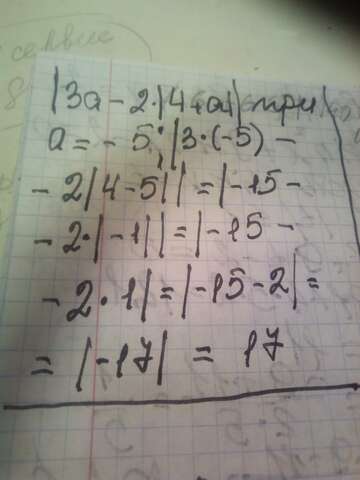 |3a - 2·|4+a|| при
a = - 5; |3·(-5) -
- 2|4-5|| = |-15 -
- 2·|-1|| = |-15 -
- 2·1| = |-15-2| =
= |-17| = 17